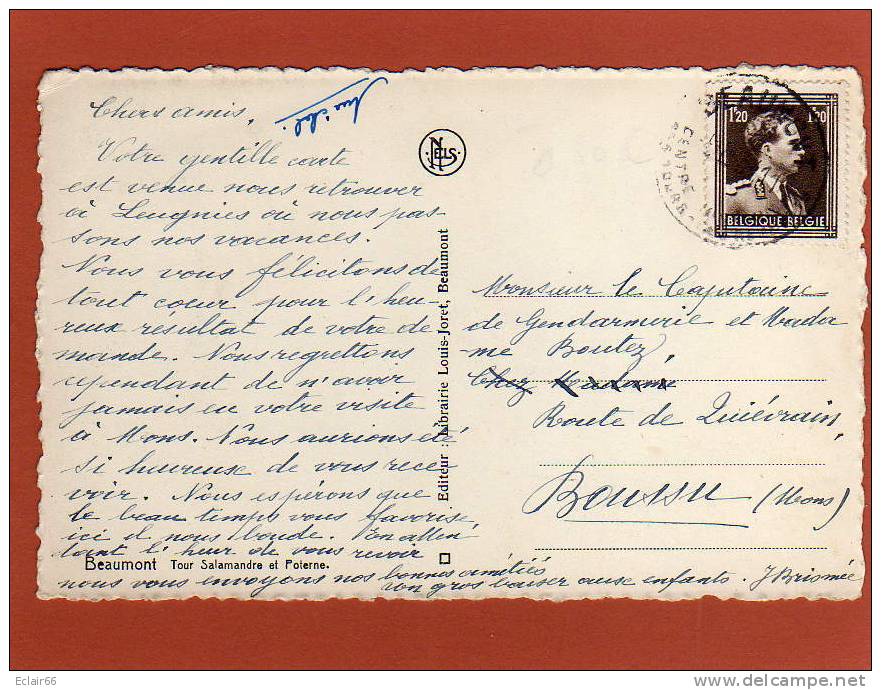 Chers amis,
Votre gentille carte
est venue nous retrouver
à Leugnies où nous pas-
sons nos vacances.
Nous vous félicitons de
tout coeur pour l'heu-
reux résultat de votre de
mande. Nous regrettons
cependant de n'avoir
jamais eu votre visite
à Mons. Nous aurions été
si heureuse de vous rece
voir. Nous espérons que
le beau temps vous favorise,
ici il nous boude. En atten
dant l'heur de vous revoir
nous vous envoyons nos bonnes amitiés
un gros baiser aux enfants.
Beaumont Tour Salamandre et Poterne.
NELS
Editeur : Librairie Louis-Joret, Beaumont
1F20 1F20
BELGIQUE-BELGIE
Monsieur le Capitaine
de Gendarmerie et Mada
me Boutez,
Chez Madame
Route de Quiévrain,
Boussu (Mons)
Eclair66
www.delcampe.net